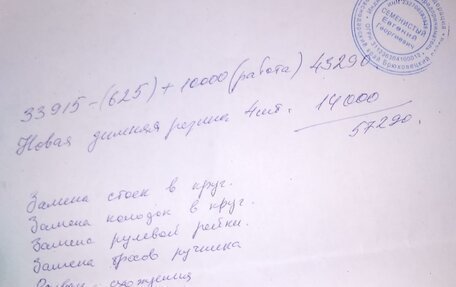 СЕМЕНИСТЫЙ
Евгений
Георгиевич
33915-(625)+10000(работа) 45290
Новая зимняя резина 4шт. 14000
57290.
Замена стоек в круг.
Замена колодок в круг.
Замена рулевой рейки.
Замена тросов ручника
схождения